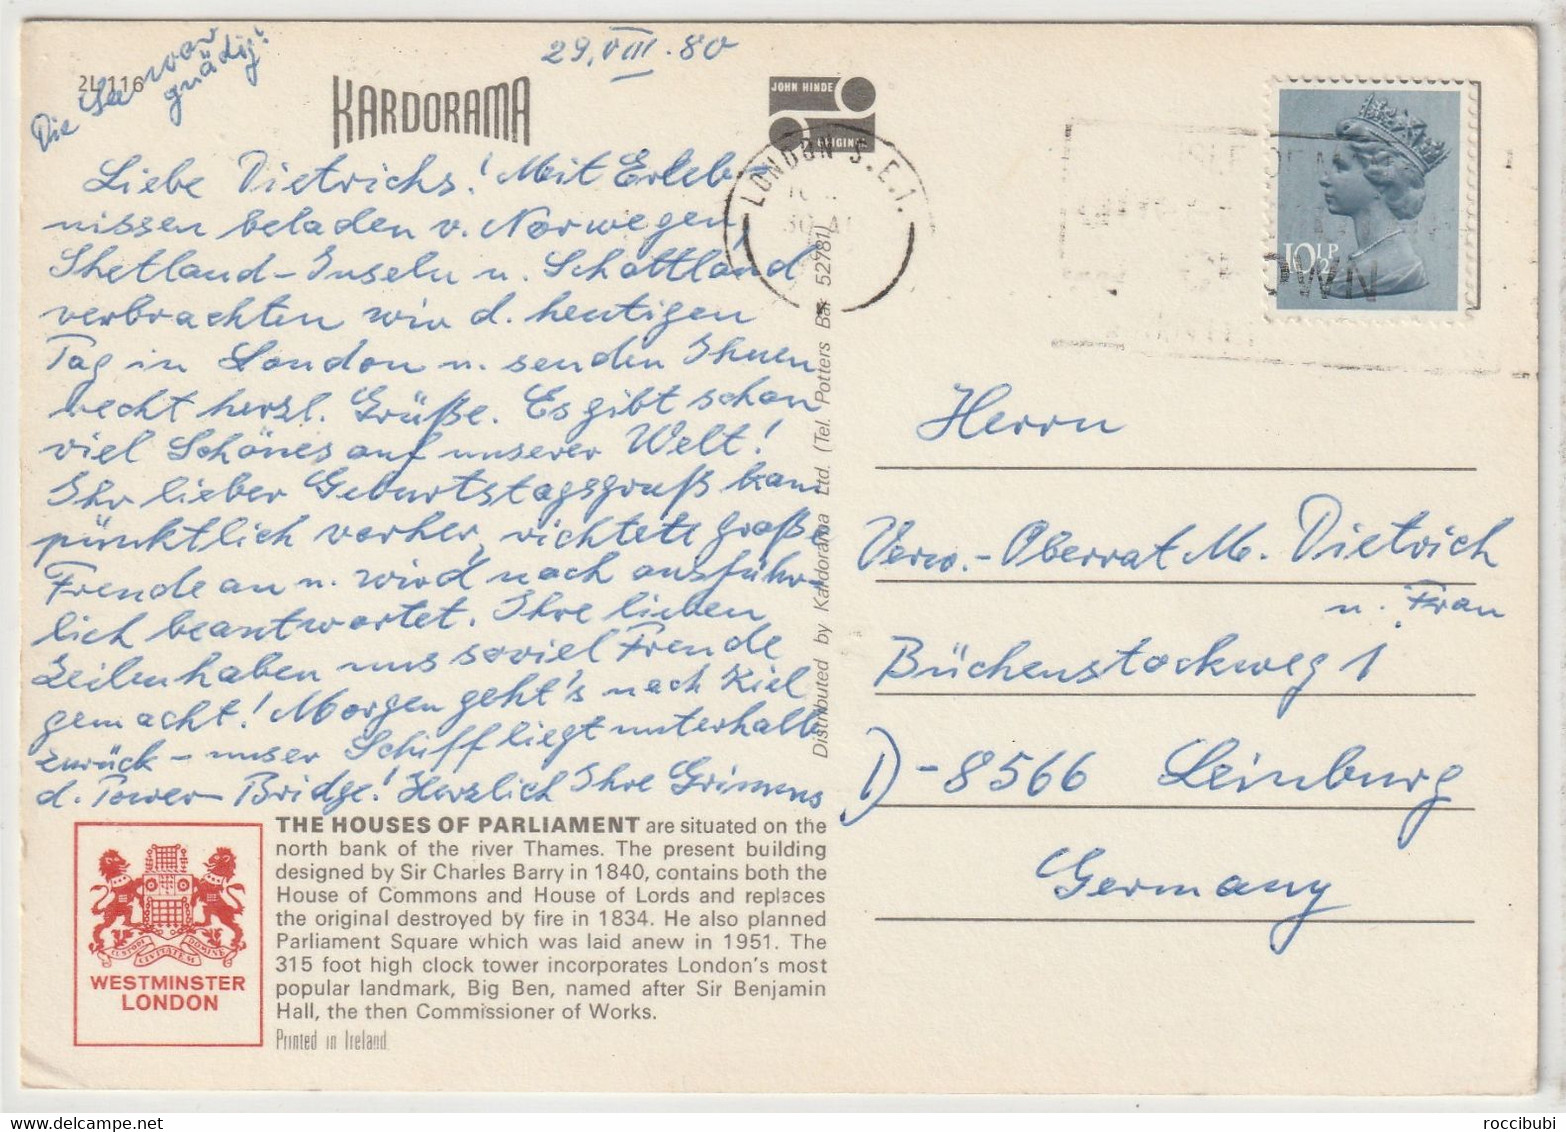 Die See war
gnädig!
29.VIII.80
2L116
KARDORAMA
JOHN HINDE
ORIGINAL
Liebe Dietrichs! Mit Erleb-
nissen beladen v. Norwegen,
Shetland-Inseln u. Schottland
verbrachten wir d. heutigen
Tag in London u. senden Ihnen
recht herzl. Grüße. Es gibt schon
viel Schönes auf unserer Welt!
Ihr lieber Geburtstagsgruß kam
pünktlich vorher, richtete große
Freude an u. wird noch ausführ-
lich beantwortet. Ihre lieben
Zeilen haben uns soviel Freude
gemacht! Morgen geht's nach Kiel
zurück - unser Schiff liegt unterhalb
d. Tower-Bridge! Herzlich Ihre Grimms
THE HOUSES OF PARLIAMENT are situated on the
north bank of the river Thames. The present building
designed by Sir Charles Barry in 1840, contains both the
House of Commons and House of Lords and replaces
the original destroyed by fire in 1834. He also planned
Parliament Square which was laid anew in 1951. The
315 foot high clock tower incorporates London's most
popular landmark, Big Ben, named after Sir Benjamin
Hall, the then Commissioner of Works.
Printed in Ireland.
CUSTODI CIVITATEM DOMINE
WESTMINSTER
LONDON
Distributed by Kardorama Ltd. (Tel. Potters Bar 52781)
LONDON S.E.1.
10½P
Herrn
Verw.-Oberrat M. Dietrich
u. Frau
Büchenstockweg 1
D-8566 Leinburg
Germany
roccibubi